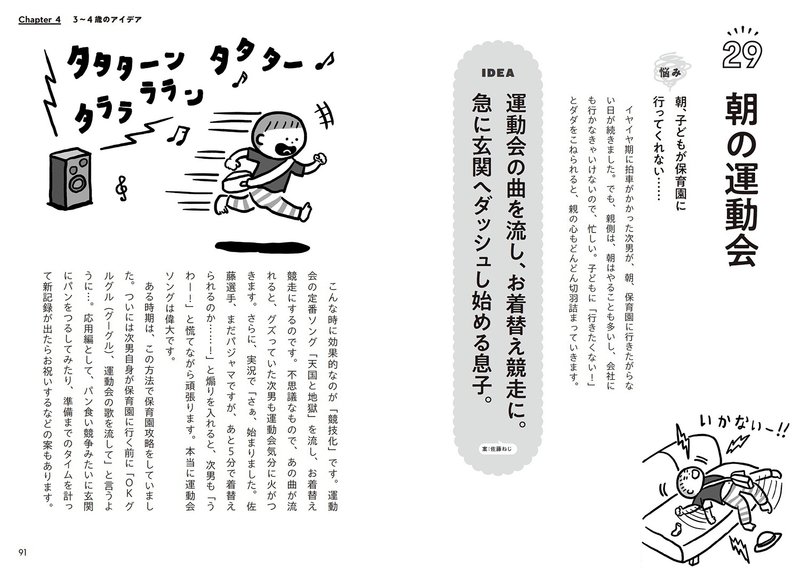 29
朝の運動会
悩み
朝、子どもが保育園に
行ってくれない……
イヤイヤ期に拍車がかかった次男が、朝、保育園に行きたがらな
い日が続きました。でも、親側は、朝はやることも多いし、会社に
も行かなきゃいけないので、忙しい。子どもに「行きたくない！」
とダダをこねられると、親の心もどんどん切羽詰まっていきます。
いかないー!!
IDEA
運動会の曲を流し、お着替え競走に。
急に玄関へダッシュし始める息子。
案：佐藤ねじ
Chapter 4 3〜4歳のアイデア
タタターン タタター
タララ ララン
こんな時に効果的なのが「競技化」です。運動
会の定番ソング「天国と地獄」を流し、お着替え
競走にするのです。不思議なもので、あの曲が流
れると、グズっていた次男も運動会気分に火がつ
きます。さらに、実況で「さぁ、始まりました。佐
藤選手、まだパジャマですが、あと5分で着替え
られるのか……！」と煽りを入れると、次男も「う
わー！」と慌てながら頑張ります。本当に運動会
ソングは偉大です。
ある時期は、この方法で保育園攻略をしていまし
た。ついには次男自身が保育園に行く前に「OKグ
ルグル（グーグル）、運動会の歌を流して」と言うよ
うに…。応用編として、パン食い競争みたいに玄関
にパンをつるしてみたり、準備までのタイムを計っ
て新記録が出たらお祝いするなどの案もあります。
91